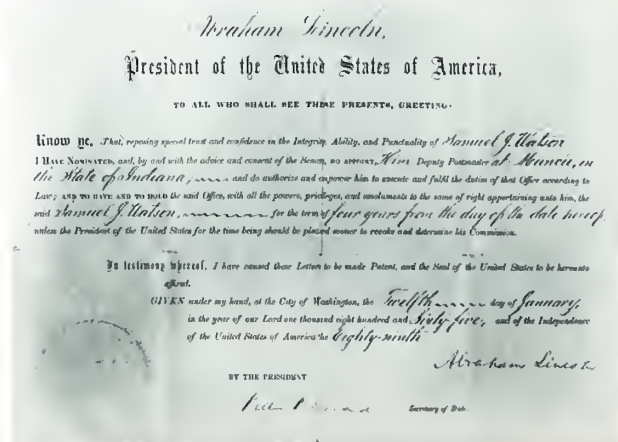 Abraham Lincoln,
President of the United States of America,
TO ALL WHO SHALL SEE THESE PRESENTS, GREETING:
Know ye, That, reposing special trust and confidence in the Integrity, Ability, and Punctuality of Samuel J. Watson
I HAVE NOMINATED, and, by and with the advice and consent of the Senate, DO APPOINT, Him Deputy Postmaster at Muncie, in
the State of Indiana, and do authorize and empower him to execute and fulfil the duties of that Office according to
Law; AND TO HAVE AND TO HOLD the said Office, with all the powers, privileges, and emoluments to the same of right appertaining unto him, the
said Samuel J. Watson, for the term of four years from the day of the date hereof
unless the President of the United States for the time being should be pleased sooner to revoke and determine his Commission.
In testimony whereof, I have caused these Letters to be made Patent, and the Seal of the United States to be hereunto
affixed.
GIVEN under my hand, at the City of Washington, the Twelfth day of January,
in the year of our Lord one thousand eight hundred and Sixty five, and of the Independence
of the United States of America the Eighty-ninth
Abraham Lincoln
BY THE PRESIDENT
Secretary of State.